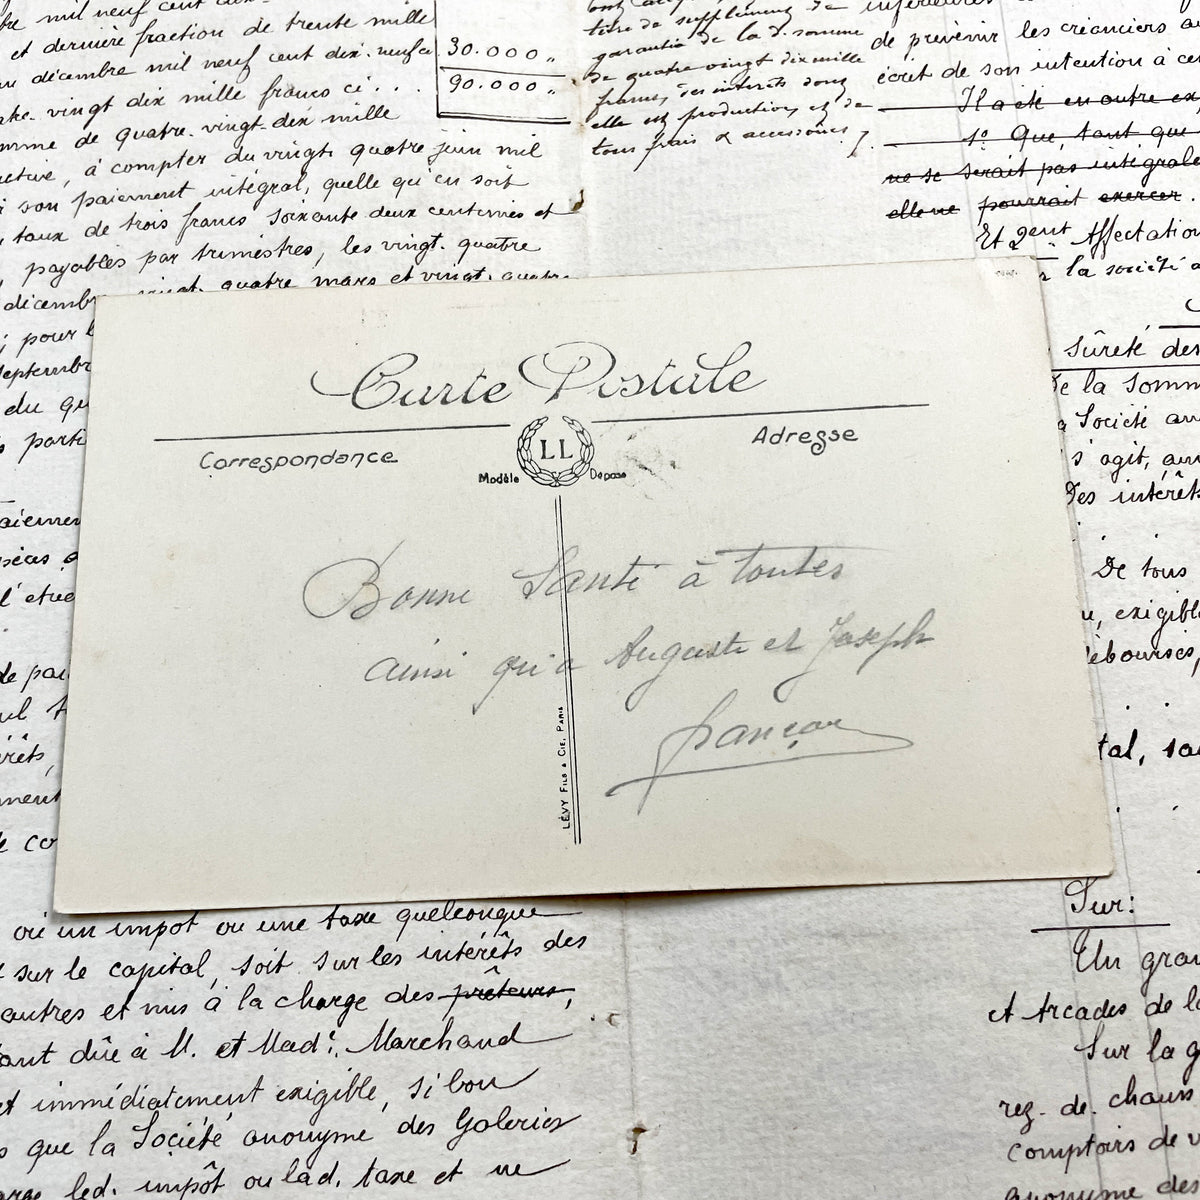 bre mil neuf cent dix-
et dernière fraction de trente mille
au décembre mil neuf cent dix-neuf ci
30.000 "
-vingt dix mille francs ci . . .
90.000 "
mme de quatre-vingt-dix mille
, à compter du vingt quatre juin mil
son paiement intégral, quelle qu'en soit
taux de trois francs soixante-deux centimes et
, payables par trimestres, les vingt-quatre
décembre vingt-quatre mars et vingt-quatre
; pour l
septembre
du qu
parti
paiement
pèces
l'étue
de pai
rêts,
ment
co
titre de supplément de
garantie de la d. somme
de quatre vingt dix mille
francs, des intérêts dont
elle est productive, et de
tous frais & accessoires /.
inférieures
de prévenir les créanciers au
écrit de son intention à cet
Il a été en outre ex
1º Que, tant que
ne se serait pas intégrale
elle ne pourrait exercer.
Et 2ent Affectation
la société a
sûreté des
de la somme
Société an
s'agit, ain
Des intérêts
De tous
, exigible
débourses,
tal, so
Carte Postale
Correspondance
LL
Adresse
Modèle
Déposé
Bonne Santé à toutes
ainsi qu'a Auguste et Joseph
françois
LÉVY FILS & CIE, PARIS
où un impôt ou une taxe quelconque
sur le capital, soit sur les intérêts des
autres et mis à la charge des prêteurs,
tant dûe à M. et Made. Marchand
et immédiatement exigible, si bon
que la Société anonyme des Galeries
led. impôt ou lad. taxe et ne
Sur:
Un gran
et Arcades de la
Sur la g
rez-de-chauss
comptoirs de v
anonyme des